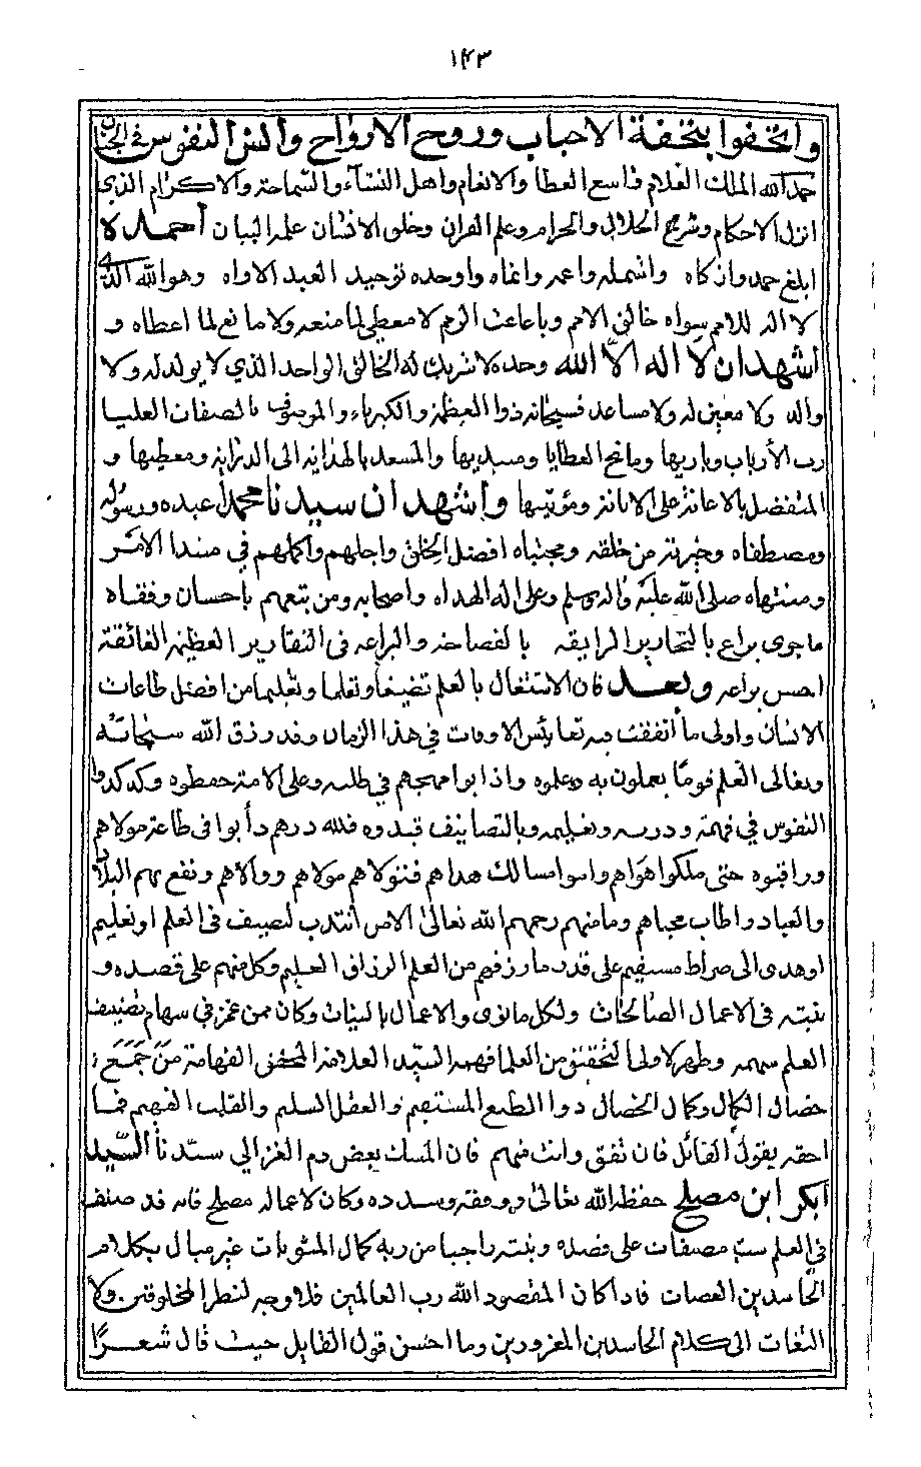 ١٤٣
واتحفوا بتحفة الاحباب وروح الارواح وانس النفوس في الجنان
حمد الله الملك العلام واسع العطا والانعام واهل الثناء والسماحة والاكرام الذي
انزل الاحكام وشرح الحلال والحرام وعلم القران وخلق الانسان علمه البيان أحمده لا
ابلغ حمد وازكاه واشمله واعمه وانماه واوحده توحيد العبد الاواه وهو الله الذي
لا اله للامم سواه خالق الامم وباعث الرمم لا معطي لما منعه ولا مانع لما اعطاه و
اشهد ان لا اله الا الله وحده لا شريك له الخالق الواحد الذي لا يولد له ولا
والد ولا معين له ولا مساعد فسبحانه ذوا العظمة والكبرياء والموصوف بالصفات العليا
رب الأرباب وباريها ومانح العطايا ومبديها والمسعد بالهداية الى الدراية ومعطيها و
المتفضل بالاعانة على الابانة ومؤتيها وأشهد ان سيدنا محمدا عبده ورسوله
ومصطفاه وخيرته من خلقه ومجتباه افضل الخلق واجلهم واكملهم في مبتدا الامر
ومنتهاه صلى الله عليه واله وسلم وعلى اله الهداه واصحابه ومن تبعهم باحسان وقفاه
ما جرى يراع بالتحارير الرايقه بالفصاحه والبراعه في التقارير العظيمه الفائقة
وبعد فان الاشتغال بالعلم تصنيفا وتعلما وتعليما من افضل طاعات
الانسان واولى ما أنفقت فيه نفايس الاوقات في هذا الزمان وقد رزق الله سبحانه
وتعالى العلم قوما يعملون به وعلموه واذابوا مهجهم في طلبه وعلى الامة حفظوه وكدكدوا
النفوس في فهمه ودرسه وتعليمه وبالتصانيف قيدوه فلله درهم دأبوا في طاعة مولاهم
وراقبوه حتى ملكوا هواهم وأموا مسالك هداهم فتولاهم مولاهم ووالاهم ونفع بهم البلاد
والعباد واطاب محياهم وما منهم رحمهم الله تعالى الا من أنتدب لتصنيف في العلم او تعليم
او هدى الى صراط مستقيم على قدر ما رزقهم من العلم الرزاق العليم وكل منهم على قصده و
نيته في الاعمال الصالحات ولكل ما نوى والاعمال بالنيات وكان ممن غمز في سهام تصنيف
العلم سهمه وظهر لاولي التحقيق من العلما فهمه السيد العلامة المحقق الفهامة من جمع
خصال الكمال وكمال الخصال ذوا الطبع المستقيم والعقل السليم والقلب الفهيم فما
احقه بقول القائل فان تفق وانت منهم فان المسك بعض دم الغزال سيدنا السيد
ابكر ابن مصلح حفظه الله تعالى ووفقه وسدده وكان لاعماله مصلح فانه قد صنف
في العلم ست مصنفات على قصده ونيته راجيا من ربه كمال المثوبات غير مبال بكلام
الحاسدين العصات فاذا كان المقصود الله رب العالمين فلا وجه لنظر المخلوقين ولا
التفات الى كلام الحاسدين المغرورين وما احسن قول القايل حيث قال شعرا